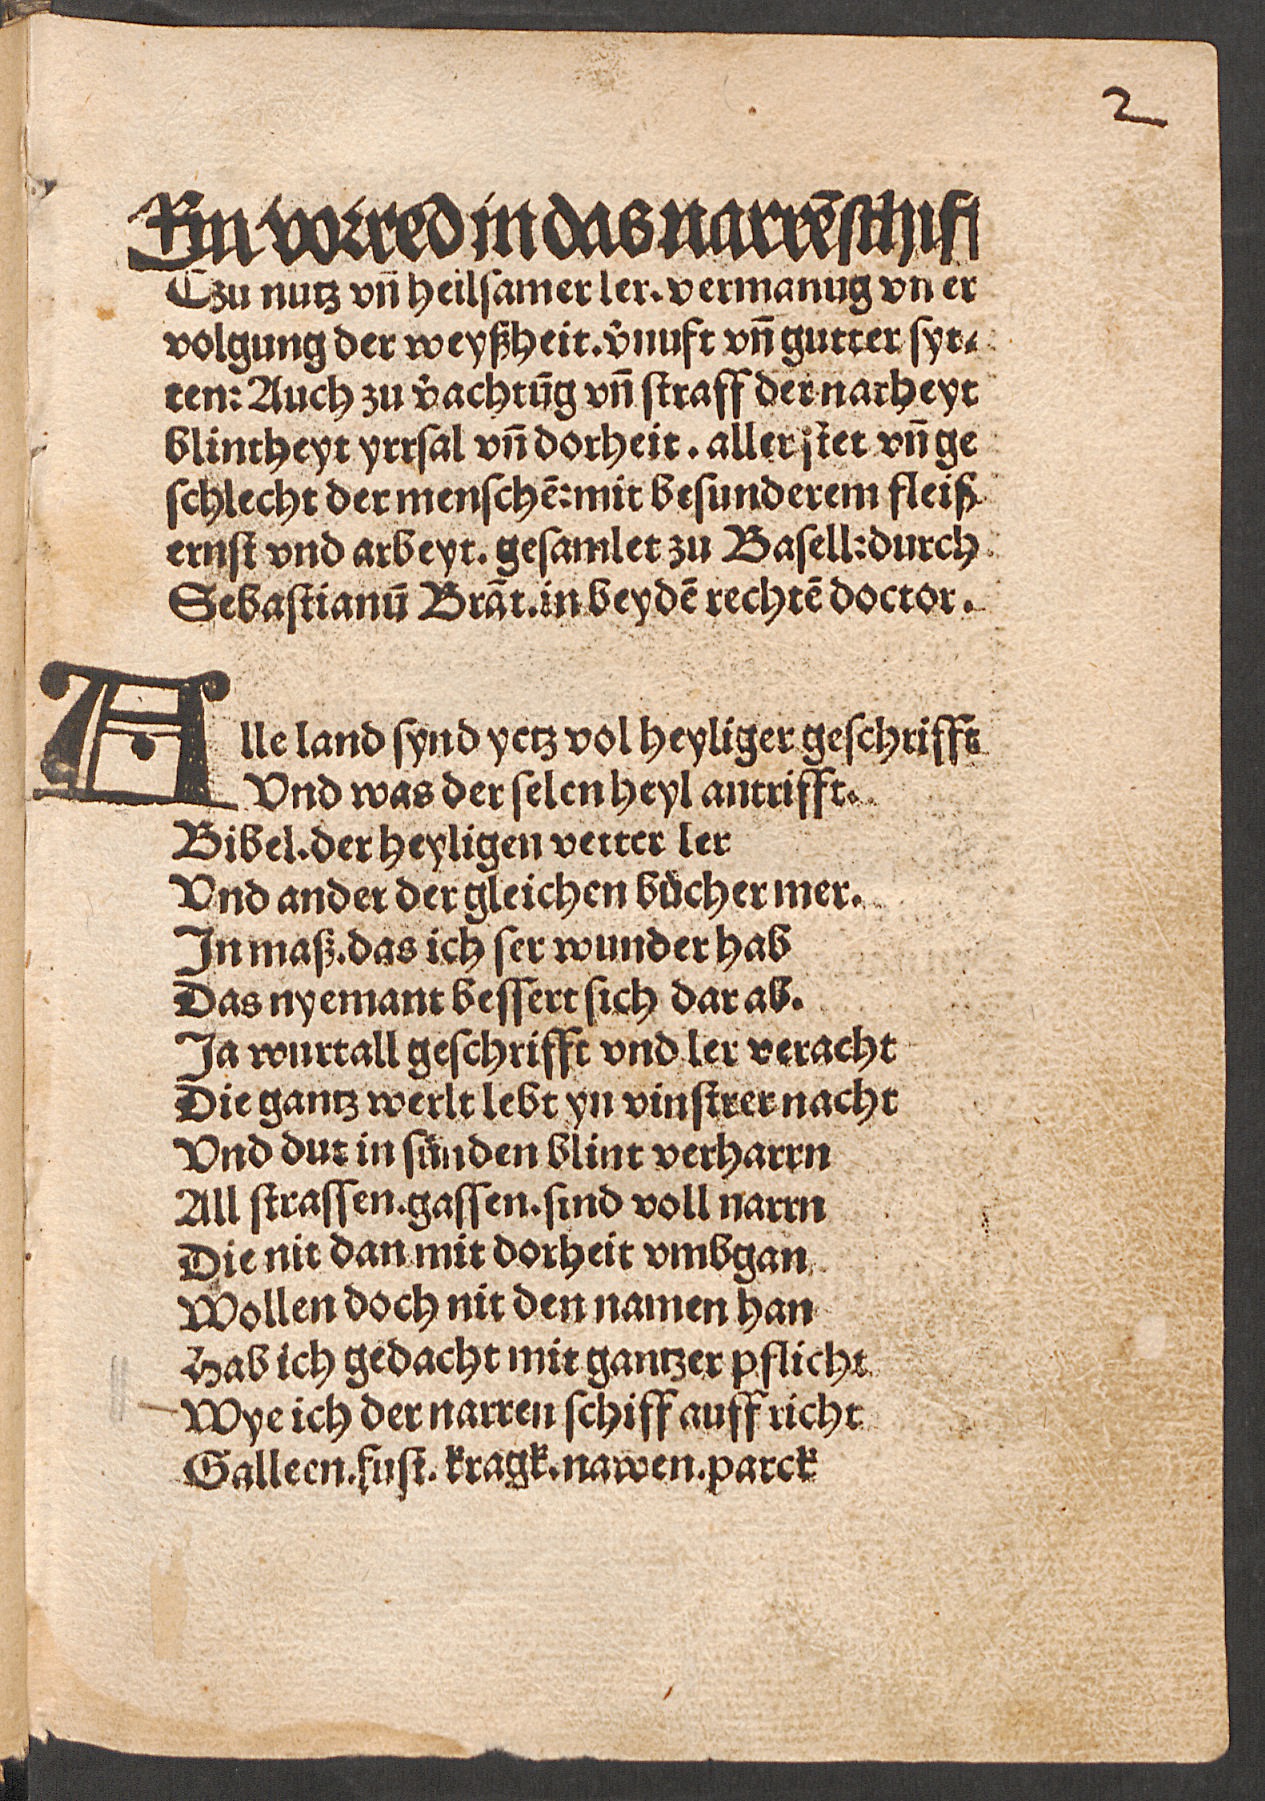 2
Ein vorred in das narrēschiff
Czu nutz vn̄ heilsamer ler. vermanug vn er
volgung der weyßheit. v̄nuft vn̄ gutter syt⸗
ten: Auch zu v̄achtūg vn̄ straff der narheyt
blintheyt yrrsal vn̄ dorheit. aller stet vn̄ ge
schlecht der menschē: mit besunderem fleiß
ernst vnd arbeyt. gesamlet zu Basell: durch
Sebastianū Brāt. in beydē rechtē doctor.
Alle land synd yetz vol heyliger geschrifft
Vnd was der selen heyl antrifft.
Bibel. der heyligen vetter ler
Vnd ander der gleichen bücher mer.
In maß. das ich ser wunder hab
Das nyemant bessert sich dar ab.
Ja wurt all geschrifft vnd ler veracht
Die gantz werlt lebt yn vinstrer nacht
Vnd dut in sünden blint verharrn
All strassen. gassen. sind voll narrn
Die nit dan mit dorheit vmbgan
Wollen doch nit den namen han
Hab ich gedacht mit gantzer pflicht
Wye ich der narren schiff auff richt
Galleen. fust. kragk. nawen. parck